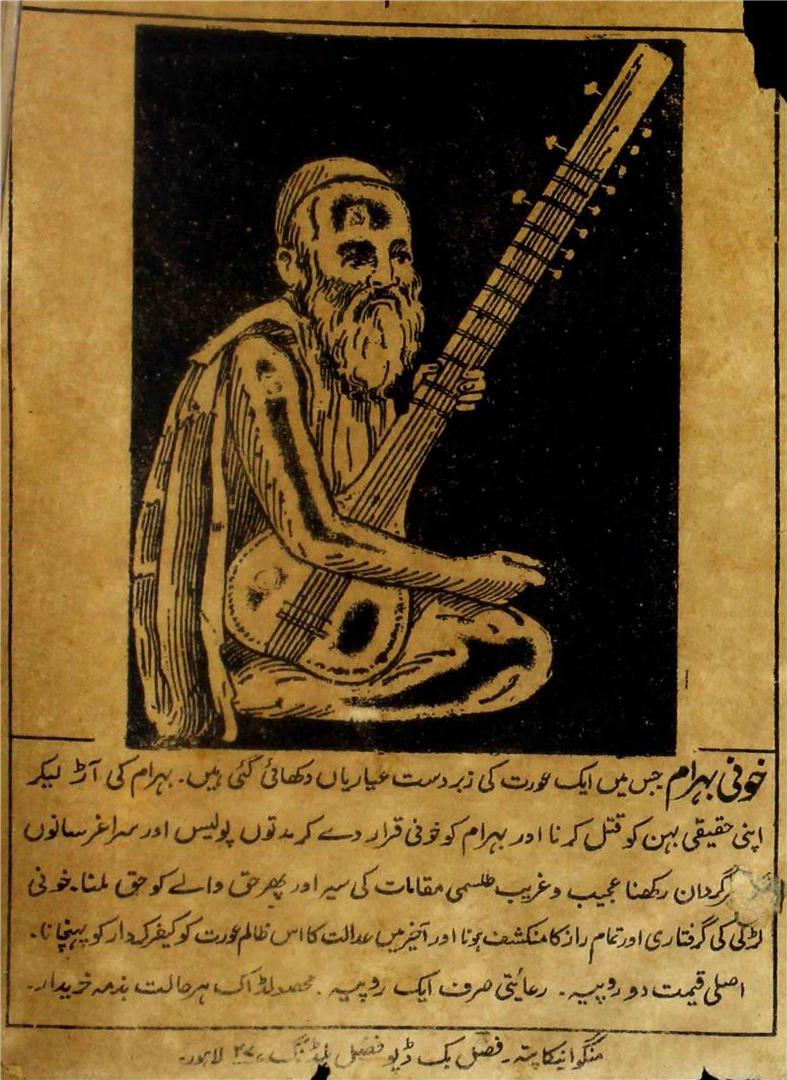 خونی بہرام جس میں ایک عورت کی زبردست عیاریاں دکھائی گئی ہیں۔ بہرام کی آڑ لیکر
اپنی حقیقی بہن کو قتل کرنا اور بہرام کو خونی قرار دے کر مدتوں پولیس اور سراغرسانوں
سرگردان رکھنا عجیب و غریب طلسمی مقامات کی سیر اور پھر حق والے کو حق ملنا۔ خونی
لڑکی کی گرفتاری اور تمام راز کا منکشف ہونا اور آخیر میں عدالت کا اس ظالم عورت کو کیفر کردار کو پہنچانا۔
اصلی قیمت دو روپیہ۔ رعائتی صرف ایک روپیہ۔ محصولڈاک ہر حالت بذمہ خریدار۔
منگوانیکا پتہ۔ فضل بک ڈپو فضل بلڈنگ ۴۷ لاہور۔